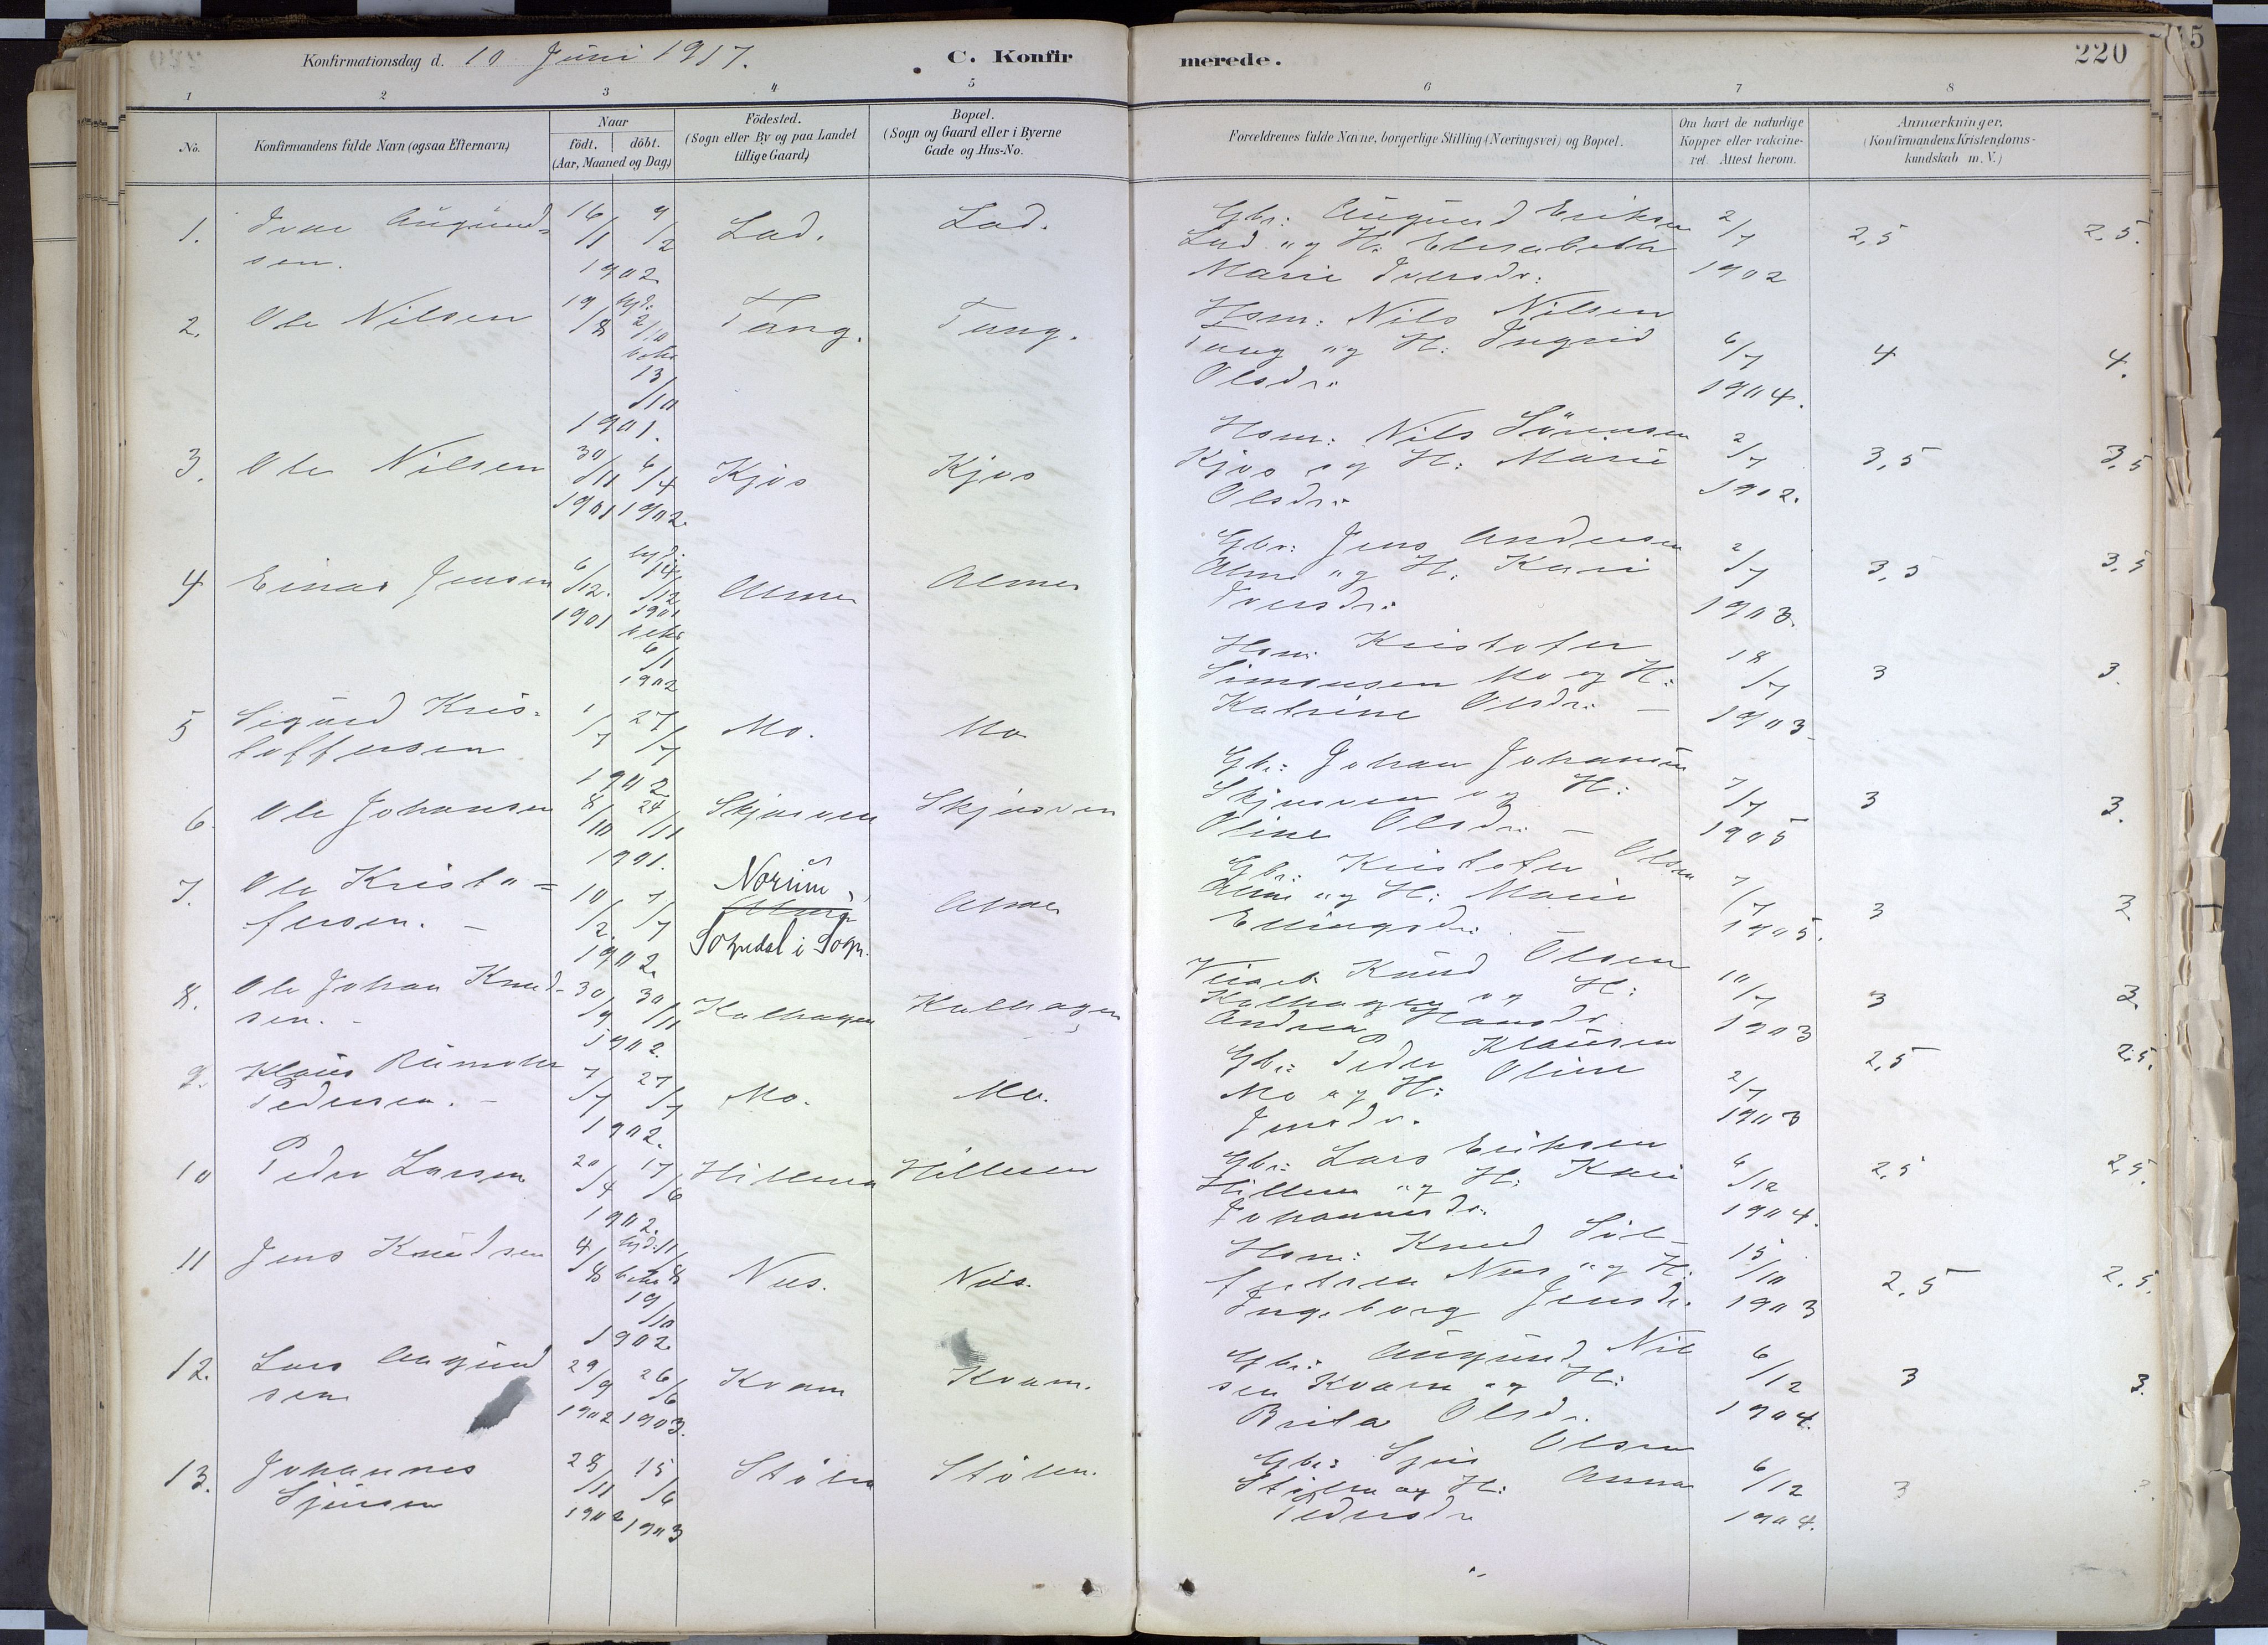 Konfirmationsdag d. 10 Juni 1917.
C. Konfirmerede.
220
1 2 3 4 5 6 7 8
No.
Konfirmandens fulde Navn (ogsaa Efternavn)
Naar
födt. döbt.
(Aar, Maaned og Dag)
Födested.
(Sogn eller By og paa Landet
tillige Gaard)
Bopæl.
(Sogn og Gaard eller i Byerne
Gade og Hus-No.
Forældrenes fulde Navne, borgerlige Stilling (Næringsvei) og Bopæl.
Om havt de naturlige
Kopper eller vakcine-
ret. Attest herom.
Anmærkninger.
(Konfirmandens Kristendoms-
kundskab m. V.)
1. Ivar Augund- 16/1 9/2 Lad. Lad. Gbr: Augund Eriksen 2/7 2,5 2,5.
sen. 1902 Lad og H: Elisabeth
Marie Iversdr: 1902
2. Ole Nilsen 19/8 hjd: 2/10 Tang. Tang. Hsm: Nils Nilsen
bekr 13/10 Tang og H: Ingrid 6/7 4 4.
1901. Olsdr: 1904.
3. Ole Nilsen 30/11 6/4 Kjøs Kjøs Hsm: Nils Sørensen 2/7 3,5 3,5
1901 1902. Kjøs og H: Marie
Olsdr: 1902.
4 Einar Jensen 6/12. hjd: 14/12 Alme Alme Gbr: Jens Andersen 2/7 3,5 3,5
1901 1901 Alme og H: Kari
bekr 6/1 1902 Iversdr: 1903.
5 Sigurd Kris- 1/7 27/7 Mo. Mo Hsm: Kristofer 18/7 3 3.
toffersen 1902 Simonsen Mo og H:
Katrine Olsdr: - 1903
6. Ole Johansen 8/10 24/11 Skjørven Skjørven Gbr: Johan Johansen 7/7 3 3.
1901. Skjørven og H:
Oline Olsdr: - 1905
7. Ole Kristo= 10/2. 7/7 Norum, Alme Gbr: Kristofer Olsen 7/7 3 3
fersen. - 1902. Sogndal i Sogn. Alme og H: Marie
Ellingsdr: 1905.
8. Ole Johan Knud- 30/9 30/11 Kalhagen Kalhagen Knud Olsen 10/7 3 3.
sen. - 1902. Kalhagen og H:
Andrea Hansdr. 1903
9. Klaus 7/7 27/7 Mo. Mo. Gbr: Peder Klausen 2/7 2,5 2,5.
Pedersen. - 1902. Mo og H: Oline
Jensdr. 1903
10 Peder Larsen 20/4 17/6 Hillern Hillern Gbr: Lars Eriksen 6/12 2,5 2,5.
1902. Hillern og H: Kari
Johannesdr: 1904.
11 Jens Knudsen 4/8 hjd: 11/8 Nus. Nus. Hsm: Knud 15/10 2,5 2,5.
bekr 19/10 Nus og H:
1902 Ingeborg Jensdr. 1903
12. Lars Augund 29/9 26/6 Kvam Kvam. Gbr: Augund Nil 6/12 3 3.
sen 1902 1903. sen Kvam og H:
Brita Olsdr. 1904.
13. Johannes 28/11 15/6 Stølen Stølen. Gbr: Sjur Olsen 6/12 3
Sjursen 1902 1903 Stølen og H: Anna
Pedersdr 1904.